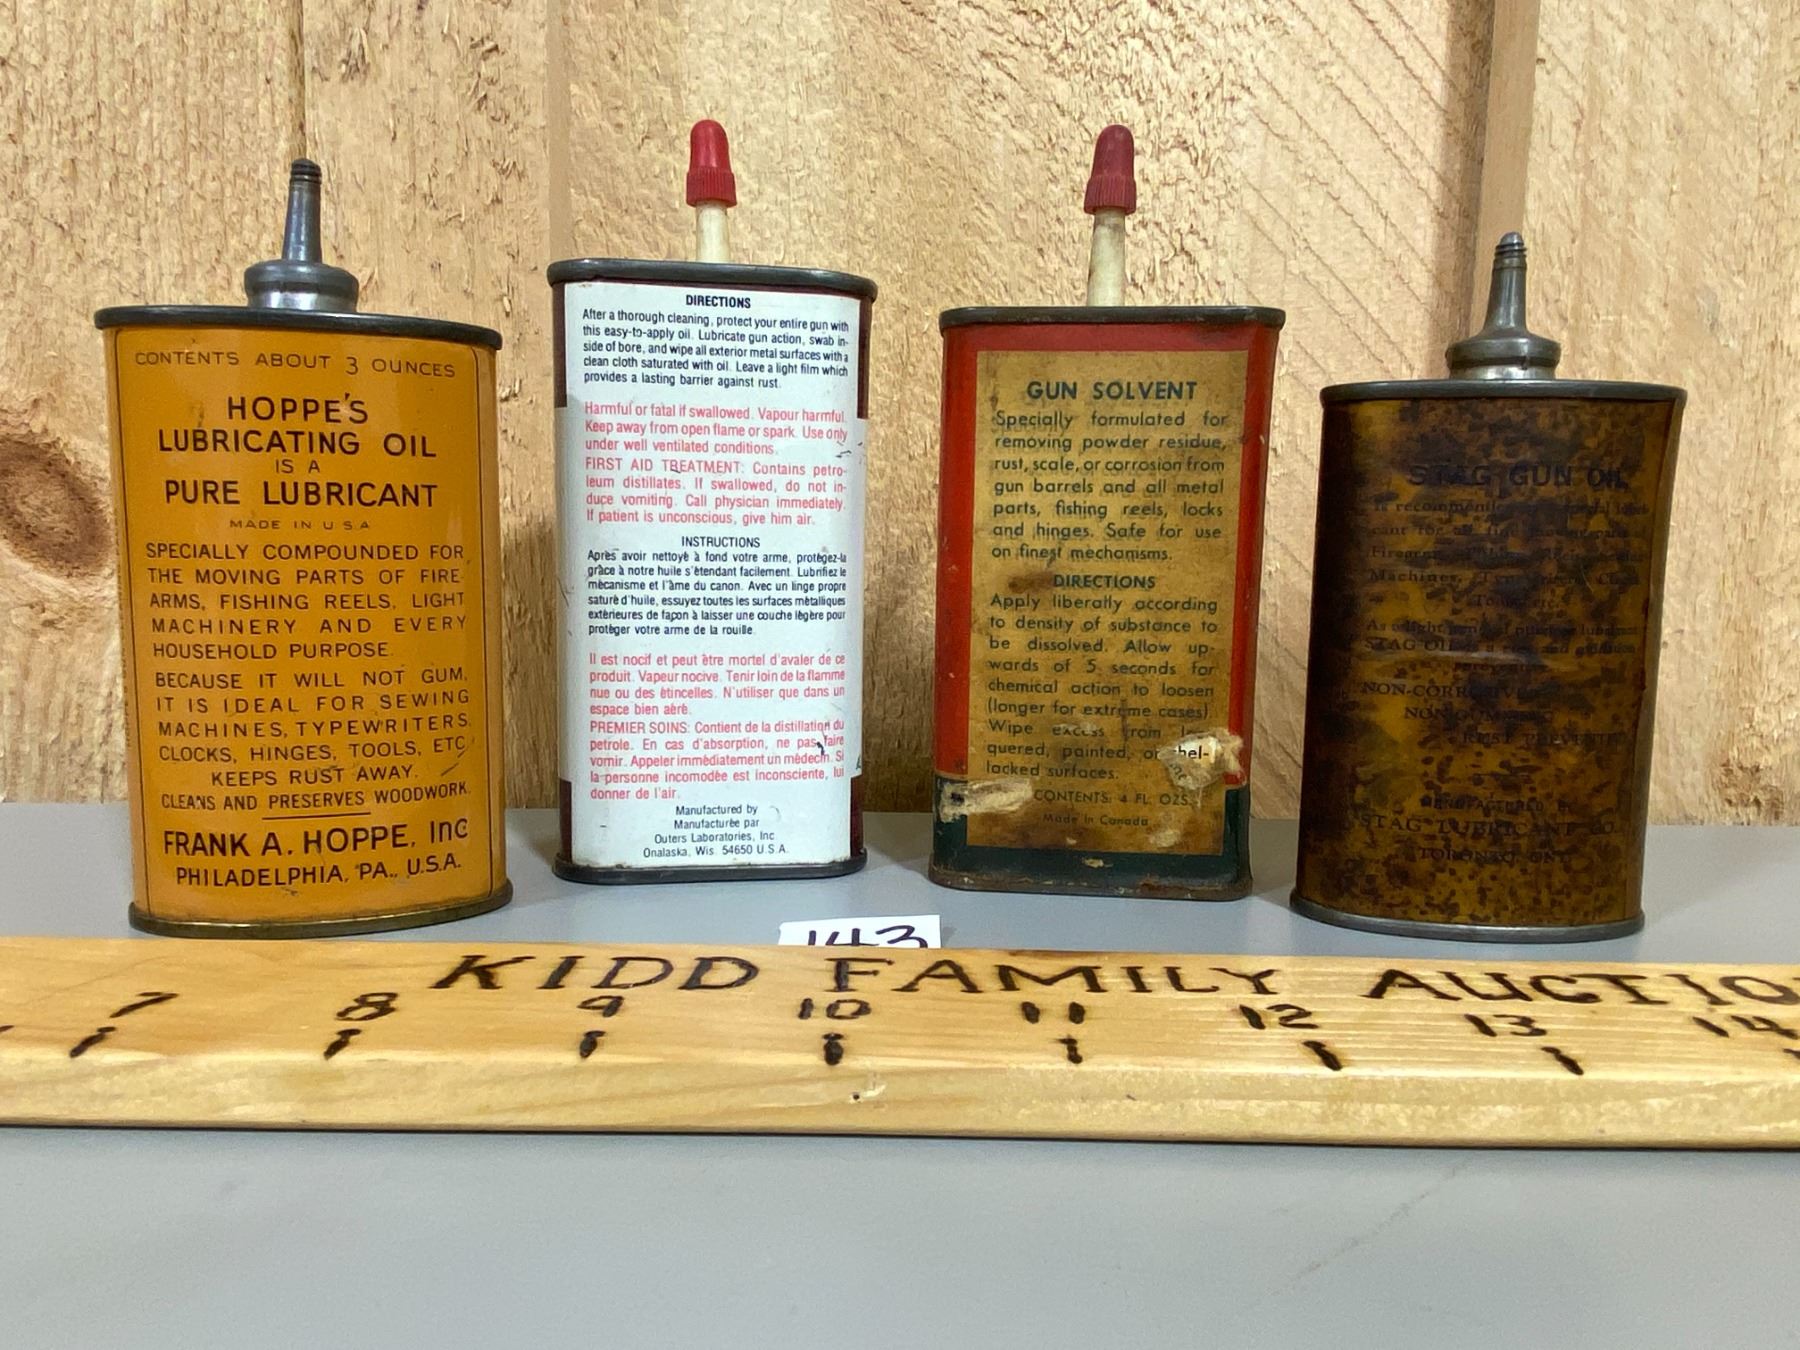 CONTENTS ABOUT 3 OUNCES
HOPPE'S
LUBRICATING OIL
IS A
PURE LUBRICANT
MADE IN U.S.A
SPECIALLY COMPOUNDED FOR
THE MOVING PARTS OF FIRE-
ARMS, FISHING REELS, LIGHT
MACHINERY AND EVERY
HOUSEHOLD PURPOSE.
BECAUSE IT WILL NOT GUM,
IT IS IDEAL FOR SEWING
MACHINES, TYPEWRITERS,
CLOCKS, HINGES, TOOLS, ETC.
KEEPS RUST AWAY.
CLEANS AND PRESERVES WOODWORK.
FRANK A. HOPPE, Inc
PHILADELPHIA, PA., U.S.A.
DIRECTIONS
After a thorough cleaning, protect your entire gun with
this easy-to-apply oil. Lubricate gun action, swab in-
side of bore, and wipe all exterior metal surfaces with a
clean cloth saturated with oil. Leave a light film which
provides a lasting barrier against rust.
Harmful or fatal if swallowed. Vapour harmful.
Keep away from open flame or spark. Use only
under well ventilated conditions.
FIRST AID TREATMENT: Contains petro-
leum distillates. If swallowed, do not in-
duce vomiting. Call physician immediately.
If patient is unconscious, give him air.
INSTRUCTIONS
Après avoir nettoyé à fond votre arme, protégez-la
grâce à notre huile s'étendant facilement. Lubrifiez le
mécanisme et l'âme du canon. Avec un linge propre
saturé d'huile, essuyez toutes les surfaces métalliques
extérieures de façon à laisser une couche légère pour
protéger votre arme de la rouille.
Il est nocif et peut être mortel d'avaler de ce
produit. Vapeur nocive. Tenir loin de la flamme
nue ou des étincelles. N'utiliser que dans un
espace bien aéré.
PREMIER SOINS: Contient de la distillation du
petrole. En cas d'absorption, ne pas faire
vomir. Appeler immédiatement un médecin. Si
la personne incomodée est inconsciente, lui
donner de l'air.
Manufactured by
Manufacturée par
Outers Laboratories, Inc.
Onalaska, Wis. 54650 U.S.A.
GUN SOLVENT
Specially formulated for
removing powder residue,
rust, scale, or corrosion from
gun barrels and all metal
parts, fishing reels, locks
and hinges. Safe for use
on finest mechanisms.
DIRECTIONS
Apply liberally according
to density of substance to
be dissolved. Allow up-
wards of 5 seconds for
chemical action to loosen
(longer for extreme cases)
Wipe excess from
quered, painted, or shel-
lacked surfaces.
CONTENTS: 4 FL. OZS.
Made in Canada
STAG GUN OIL
is recommended special
cant for all
Machines,
As a light
STAG OIL is a
NON-CORROSIVE
MANUFACTURED BY
STAG LUBRICANT CO.
TORONTO, ONT.
143
KIDD FAMILY AUCTIO
7 8 9 10 11 12 13 14